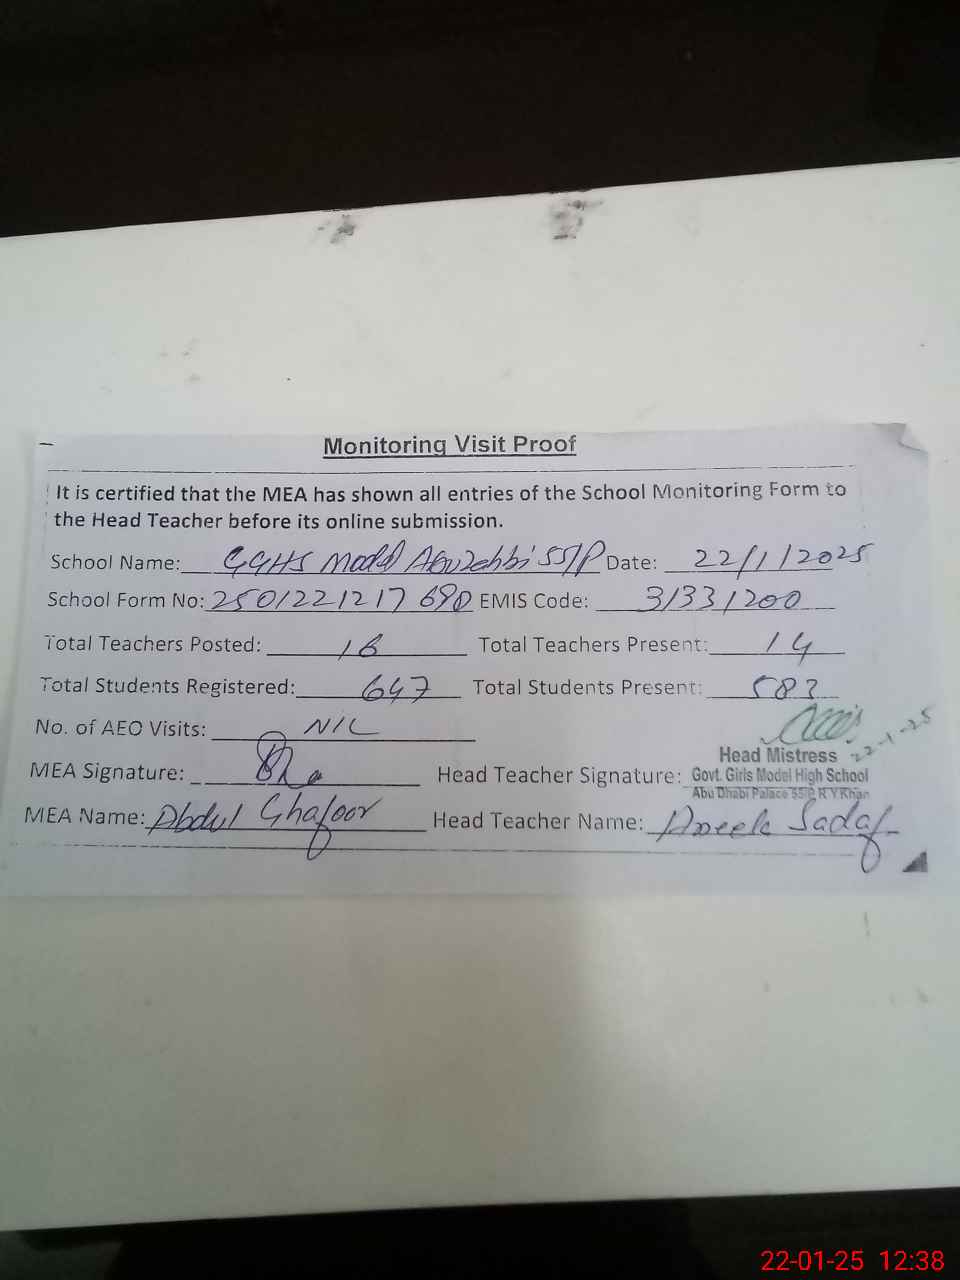 Monitoring Visit Proof
It is certified that the MEA has shown all entries of the School Monitoring Form to
the Head Teacher before its online submission.
School Name: GGHS Model Abuzahbi 55/P Date: 22/1/2025
School Form No: 2501221217690 EMIS Code: 31331200
Total Teachers Posted: 16 Total Teachers Present: 14
Total Students Registered: 647 Total Students Present: 583
No. of AEO Visits: NIL
22-1-25
MEA Signature: Head Teacher Signature:
Head Mistress
Govt. Girls Model High School
Abu Dhabi Palace 55/P, R.Y.Khan
MEA Name: Abdul Ghafoor Head Teacher Name: Sadaf
22-01-25 12:38